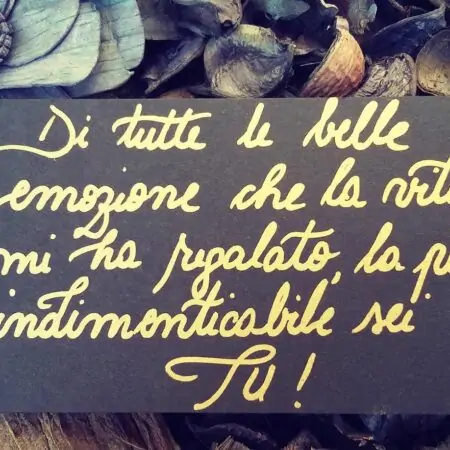 Di tutte le belle
emozione che la vit
mi ha regalato, la p
indimenticabile sei
TU!